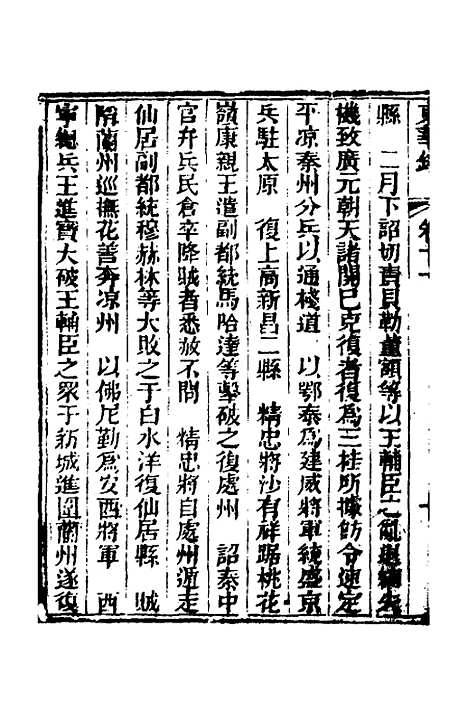 東華錄 卷十一
縣 二月下詔切責貝勒董額等以王輔臣之亂
機致廣元朝天諸關已克復者復爲三桂所據飭令速定
平凉秦州分兵以通棧道 以鄂泰爲建威將軍統盛京
兵駐太原 復上高新昌二縣 精忠將沙有祥踞桃花
嶺康親王遣副都統馬哈達等擊破之復處州 詔秦中
官弁兵民倉卒降賊者悉赦不問 精忠將自處州遁走
仙居副都統穆赫林等大敗之于白水洋復仙居縣 賊
陷蘭州巡撫花善奔凉州 以佛尼勒爲安西將軍 西
寧總兵王進寶大破王輔臣之眾于新城進圍蘭州遂復